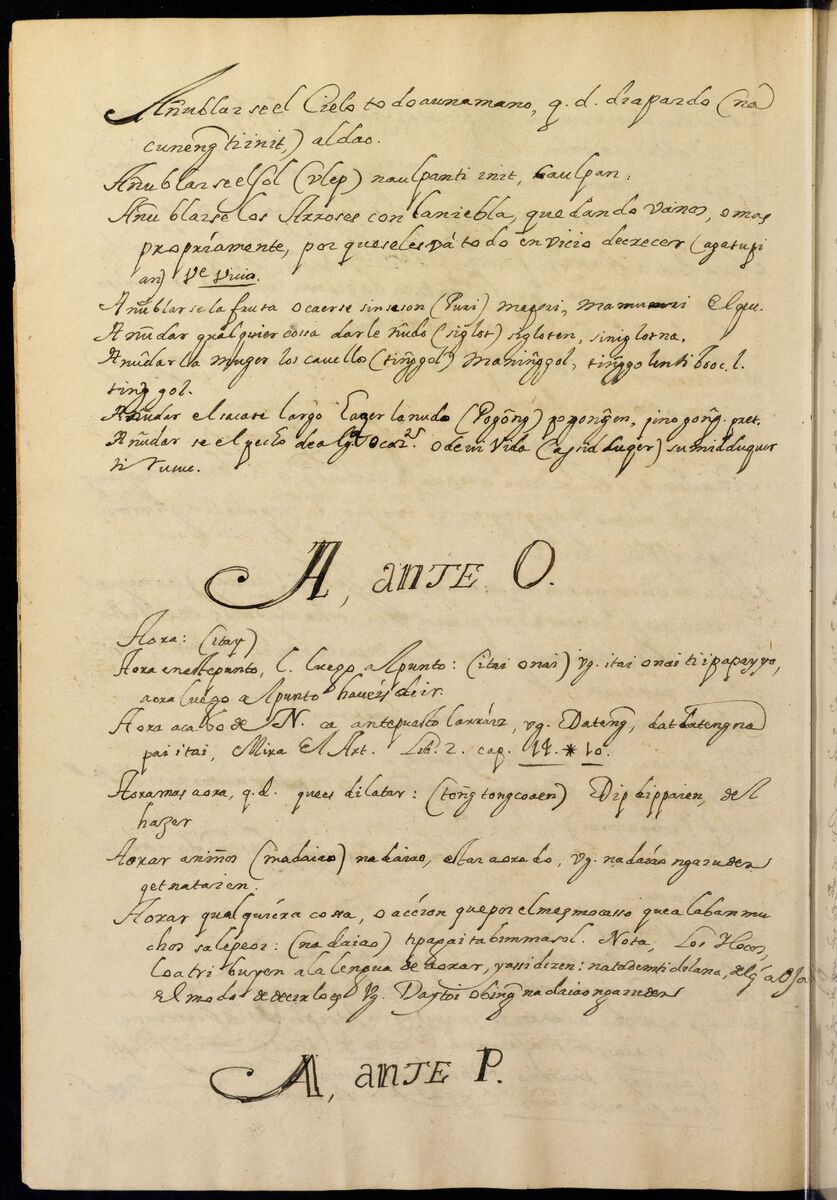 Añublarse el Cielo todo a una mano, q. d. dia pardo (na
cuneng̃ ti init,) aldao.
Añublarse el sol (vlep) naulpan ti init, caulpan.
Añublarse los Arroses con la niebla, quedando vanos, o mas
propríamente, por que seles vá todo en vicio de crecer (agatupi
an) Ve Vicio.
Añublarse la fruta o caerse sin seson (Puri) mapuri, el que.
Añudar qualquier cossa darle ñudo (siglot) sigloten, siniglot na.
Añudar la muger los cauellos (ting̃gol) maning̃gol, ting̃golen ti booc. l.
ting̃gol.
Añudar el sacate largo Eazer la nudo (Pogõng) pogong̃en, pinogong̃. pret.
Añudar se el pecho de alg. o de mi Vida (agsidduger) sumidduguer
ti
A, ante O.
Aora: (itay)
Aora en este punto, l. luego al punto: (itai onai) vg. itai onai ti ipapayyo,
aora luégo al punto hauéis de ir.
Aora acabo de N. ca antepuesto la rráiz, vg. Dateng̃, na
pai itai, Mira El Art. Lib. 2. cap. 14. * 10.
Aora mas aora, q. d. quees dilatar: (tong̃tongcoaen) Dipdipparen, del
hazer
Aoxar a niños (madaiao) nadaiao, estar aoxado, vg. nadaiáo ngaruder
get natai en.
Aoxar qualquiéra cossa, o accion que por el mesmo casso que alaban mu
chos sale peor: (nadaiao) tipapaitabinmasol. Nota, Los Ylocos,
lo atribuyen a la lengua de aoxar, y assi dizen: natademti dilana, delq̃ aOJa
El modo de decirlo es Vg. nadaiao ngaruder
A, ante P.